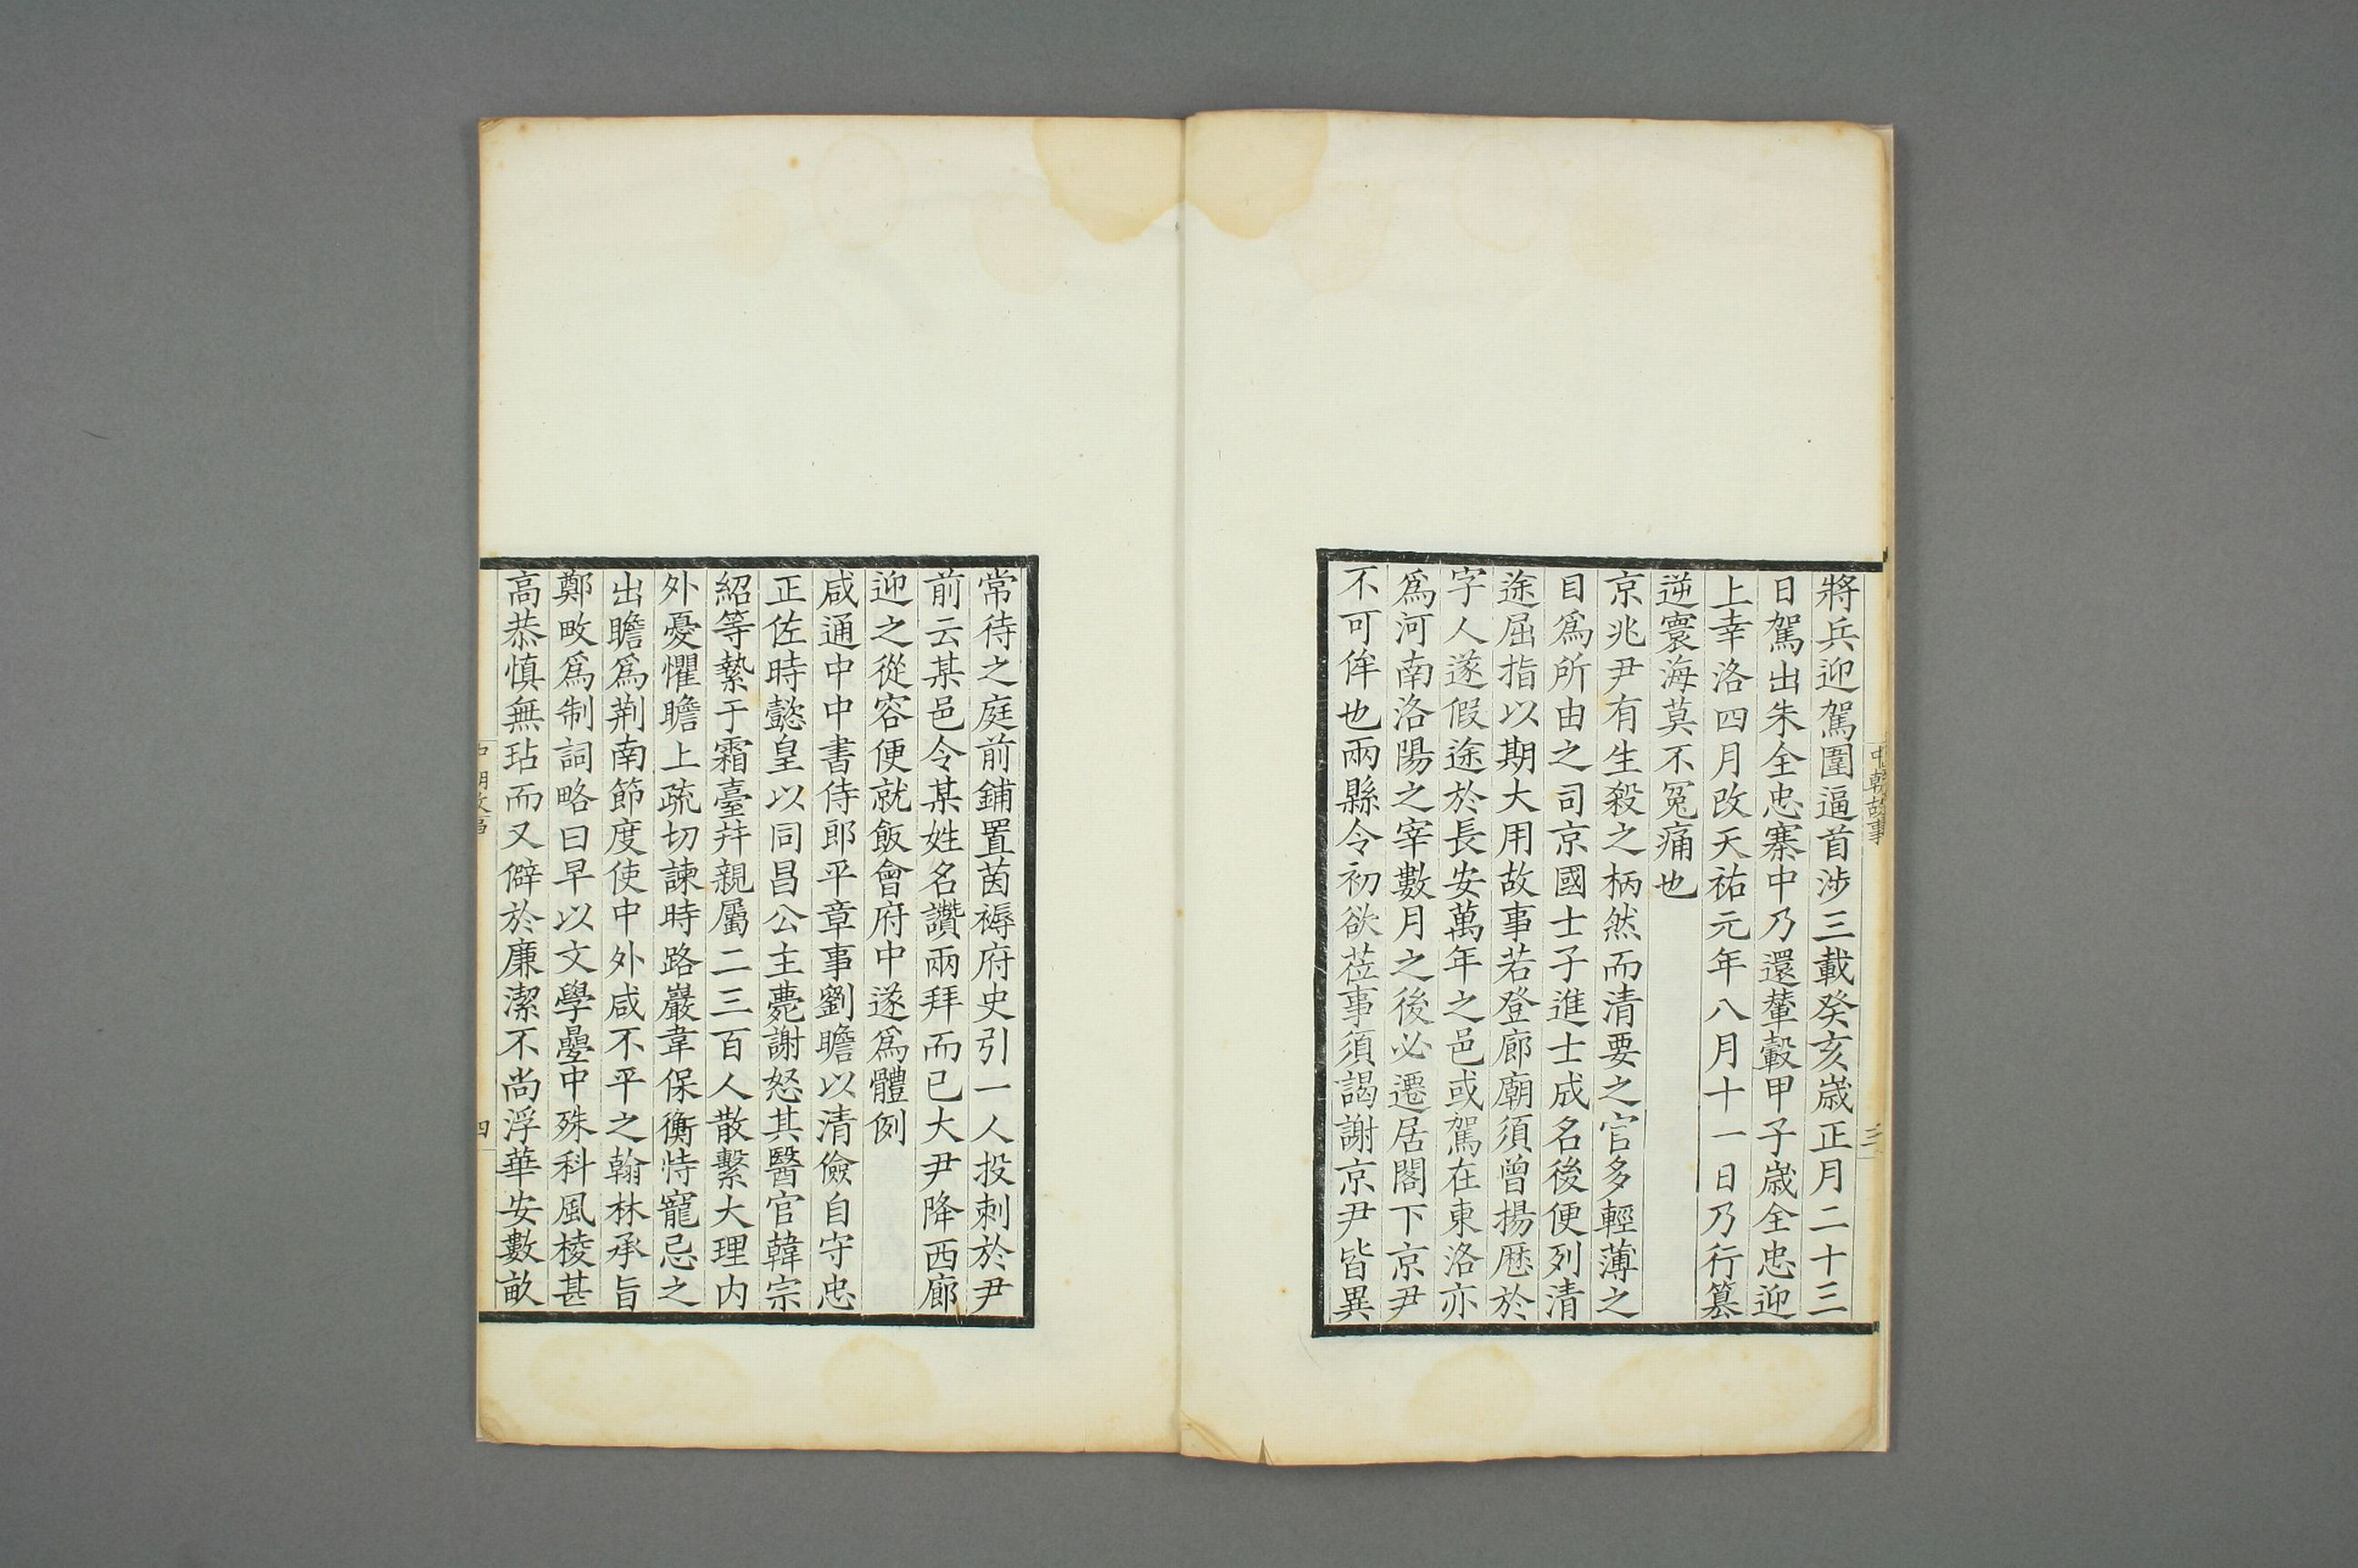 中朝故事
三
將兵迎駕圍逼首涉三載癸亥歲正月二十三
日駕出朱全忠寨中乃還輦轂甲子歲全忠迎
上幸洛四月改天祐元年八月十一日乃行篡
逆寰海莫不冤痛也
京兆尹有生殺之柄然而清要之官多輕薄之
目爲所由之司京國士子進士成名後便列清
途屈指以期大用故事若登廊廟須曾揚歷於
字人遂假途於長安萬年之邑或駕在東洛亦
爲河南洛陽之宰數月之後必遷居閣下京尹
不可侔也兩縣令初欲莅事須謁謝京尹皆異
常待之庭前鋪置茵褥府史引一人投刺於尹
前云某邑令某姓名讚兩拜而已大尹降西廊
迎之從容便就飯會府中遂爲體例
咸通中中書侍郎平章事劉瞻以清儉自守忠
正佐時懿皇以同昌公主薨謝怒其醫官韓宗
紹等縶于霜臺幷親屬二三百人散繫大理内
外憂懼瞻上疏切諫時路巖韋保衡恃寵忌之
出瞻爲荆南節度使中外咸不平之翰林承旨
鄭畋爲制詞略曰早以文學疊中殊科風棱甚
高恭慎無玷而又僻於廉潔不尚浮華安數畝
中朝故事
四